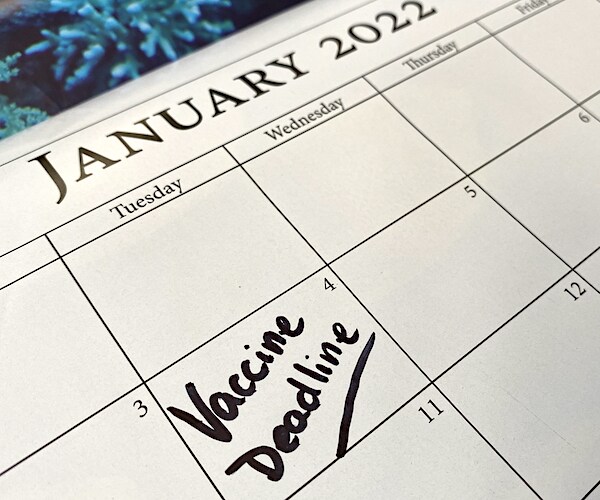 JANUARY 2022
Tuesday
Wednesday
Thursday
Friday
3
4
5
6
Vaccine
Deadline
11
12